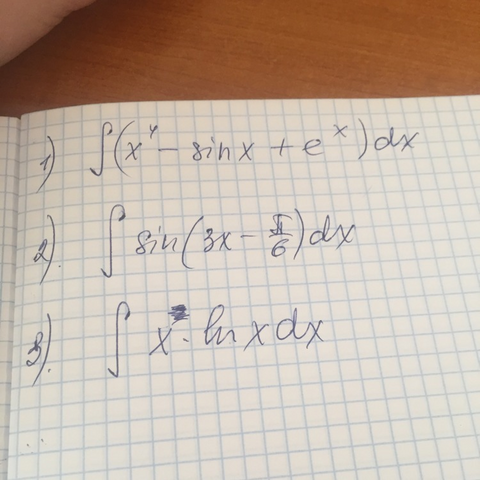 1) ∫(x⁴ - sin x + eˣ)dx
2). ∫ sin(3x - π/6)dx
3). ∫ x · ln x dx